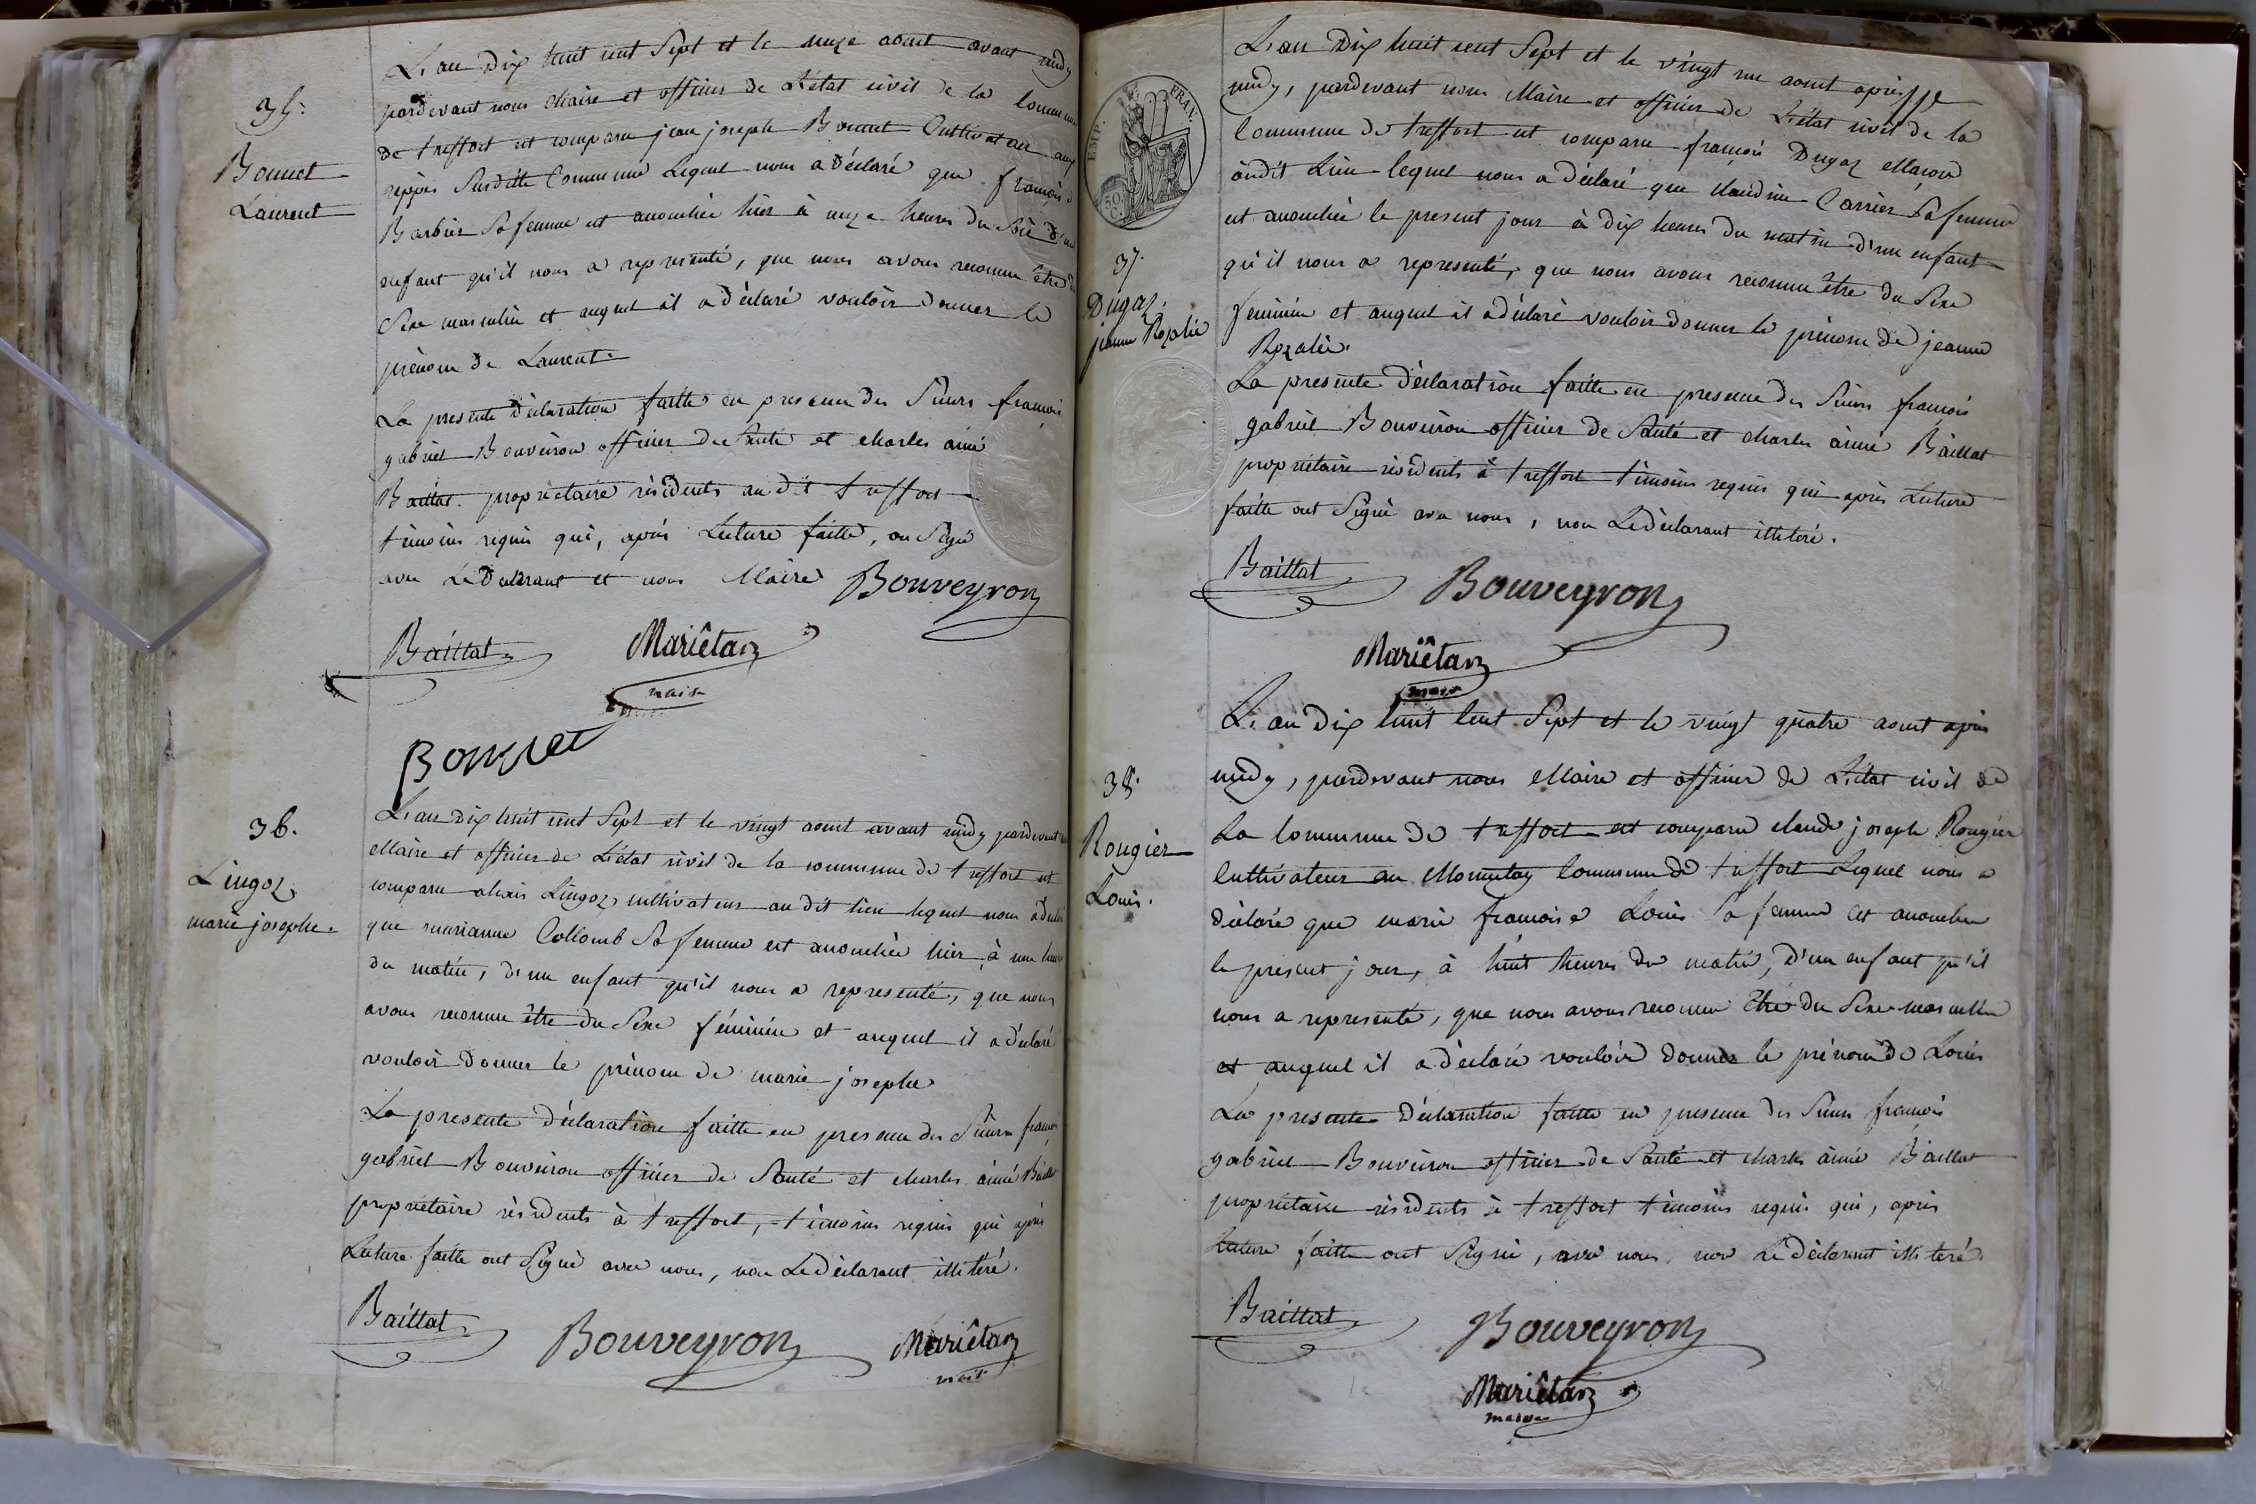 35.
Bonnet
Laurent
L'an Dix huit cent Sept et le onze aout avant midy
pardevant nous Maire et officier de L'état civil de la Commune
de treffort est comparu jean joseph Bonnet Cultivateur aux
Susditte Commune Lequel nous a déclaré que françoise
Barbier Sa femme est accouchée hier à onze heures du Soir d'un
enfant qu'il nous a représenté, que nous avons reconnu être du
Sexe masculin et auquel il a déclaré vouloir donner le
prénom de Laurent.
La presente déclaration faitte en presence des Sieurs françois
gabriel Bouveiron officier de Santé et charles aimé
Baillat propriétaire résidents au dit treffort
témoins requis qui, après Lecture faitte, on Signé
avec Le Déclarant et nous Maire
Bouveyron
Baillat
Mariêtan
maire
Bonnet
36.
Lingoz
marie josephe.
L'an Dix huit cent Sept et le vingt aout avant midy pardevant
Maire et officier de L'état civil de la commune de treffort est
comparu alexis Lingoz cultivateur au dit lieu lequel nous a déclaré
que marianne Collomb Sa femme est accouchée hier, à une heure
du matin, d'un enfant qu'il nous a representé, que nous
avons reconnu être du Sexe féminin et auquel il a déclaré
vouloir Donner le prénom de marie josephe
La presente déclaration faitte en presence des Sieurs françois
gabriel Bouveiron officier de Santé et charles aimé Baillat
propriétaire résidents à treffort, témoins requis qui après
Lecture faitte ont Signé avec nous, non Le Déclarant illitéré.
Baillat
Bouveyron
Mariêtan
maire
EMP. FRAN.
50 C.
37.
Dugaz.
jeanne Rozalie
L'an Dix huit cent Sept et le vingt un aout après
midy, pardevant nous Maire et officier de L'état civil de la
Commune de treffort est comparu françois Dugaz Maçon
àudit Lieu lequel nous a déclaré que claudine Carrier Sa femme
est accouchée le present jour à dix heures du matin d'un enfant
qu'il nous a representé, que nous avons reconnu être du Sexe
feminin et auquel il a déclaré vouloir donner le prénom de jeanne
Rozalie.
La presente déclaration faitte en presence des Sieurs françois
gabriel Bouveiron officier de Santé et charles àimé Baillat
propriétaire résidents à treffort témoins requis qui après Lecture
faitte ont Signé avec nous, non Le déclarant illitéré.
Baillat
Bouveyron
Mariêtan
maire
38.
Rougier
Louis.
L'an Dix huit Cent Sept et le vingt quatre aout après
midy, pardevant nous Maire et officier de L'état civil de
La Commune de treffort est comparu claude joseph Rougier
Cultivateur au Commune de treffort Lequel nous a
déclaré que marie françoise Louis Sa femme est accouchée
le present jour, à huit heures du matin, d'un enfant qu'il
nous a representé, que nous avons reconnu être du Sexe masculin
et auquel il a déclaré vouloir donner le prénom de Louis
La presente déclaration faitte en presence des Sieurs françois
gabriel Bouveiron officier de Santé et charles àimé Baillat
propriétaire résidents à treffort témoins requis qui, après
Lecture faitte ont Signé, avec nous, non Le déclarant illitéré.
Baillat
Bouveyron
Mariêtan
maire